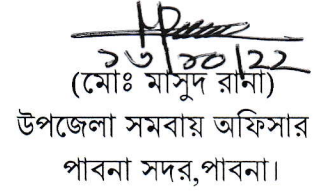 ১৬/১০/22
(মোঃ মাসুদ রানা)
উপজেলা সমবায় অফিসার
পাবনা সদর,পাবনা।